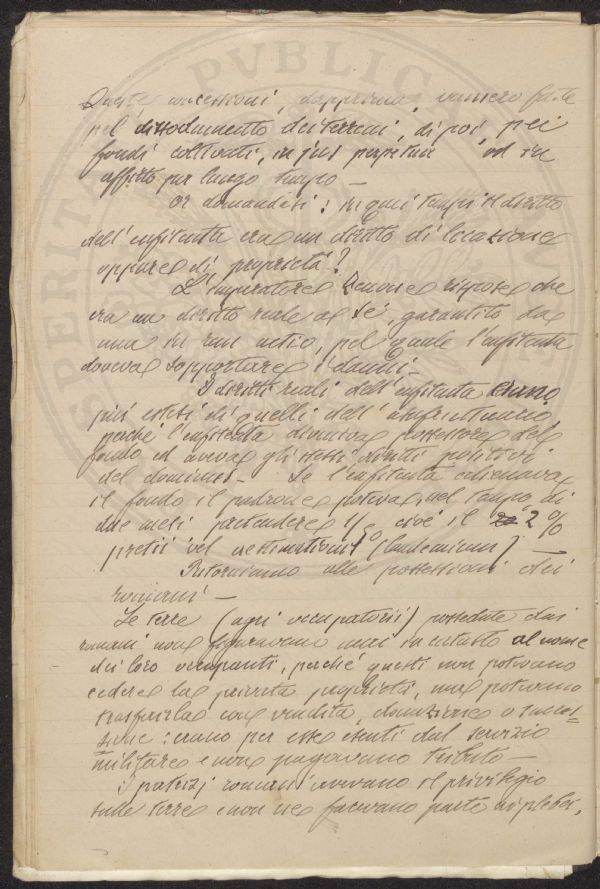 Queste concessioni, dapprima, vennero fatte
pel dissodamento dei terreni, di poi pei
fondi coltivati, in jus perpetuum od in
affitto per lungo tempo —
Or domandasi: in quei tempi il diritto
dell'enfiteuta era un diritto di locazione
oppure di proprietà?
L'imperatore Zenone rispose che
era un diritto reale a sé, garantito da
una in rem actio, pel quale l'enfiteuta
doveva sopportare i danni —
I diritti reali dell'enfiteuta erano
più estesi di quelli dell'usufruttuario
perché l'enfiteuta diveniva possessore del
fondo ed aveva gli stessi diritti positivi
del dominus — Se l'enfiteuta alienava
il fondo il padrone poteva, nel tempo di
due mesi pretendere cioè il 2 %
pretii vel aestimationis (laudemium) —
Ritorniamo alle possessioni dei
romani —
Le terre (agri occupatorii) possedute dai
romani non figuravano mai in catasto al nome
dei loro occupanti, perché questi non potevano
cedere la privata proprietà, ma potevano
trasferirla con vendita, donazione o succes=
sione: erano per esse esenti dal servizio
militare e non pagavano tributo —
I patrizj romani avevano il privilegio
sulle terre e non ne facevano parte ai plebei,
PVBLIC
PERITA